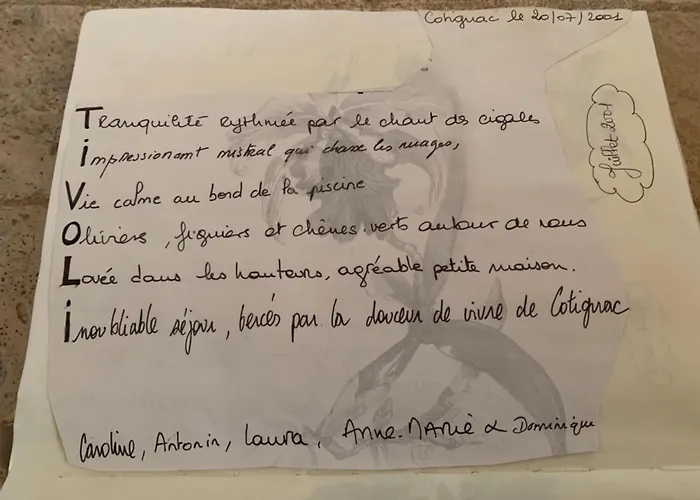 Cotignac le 20/07/2001
Juillet 2001
Tranquilité rythmée par le chant des cigales
Impressionant mistral qui chasse les nuages,
Vie calme au bord de la piscine
Oliviers, figuiers et chênes verts autour de nous
Lovée dans les hauteurs, agréable petite maison.
Inoubliable séjour, bercés par la douceur de vivre de Cotignac
Caroline, Antonin, Laura, Anne-Marie & Dominique